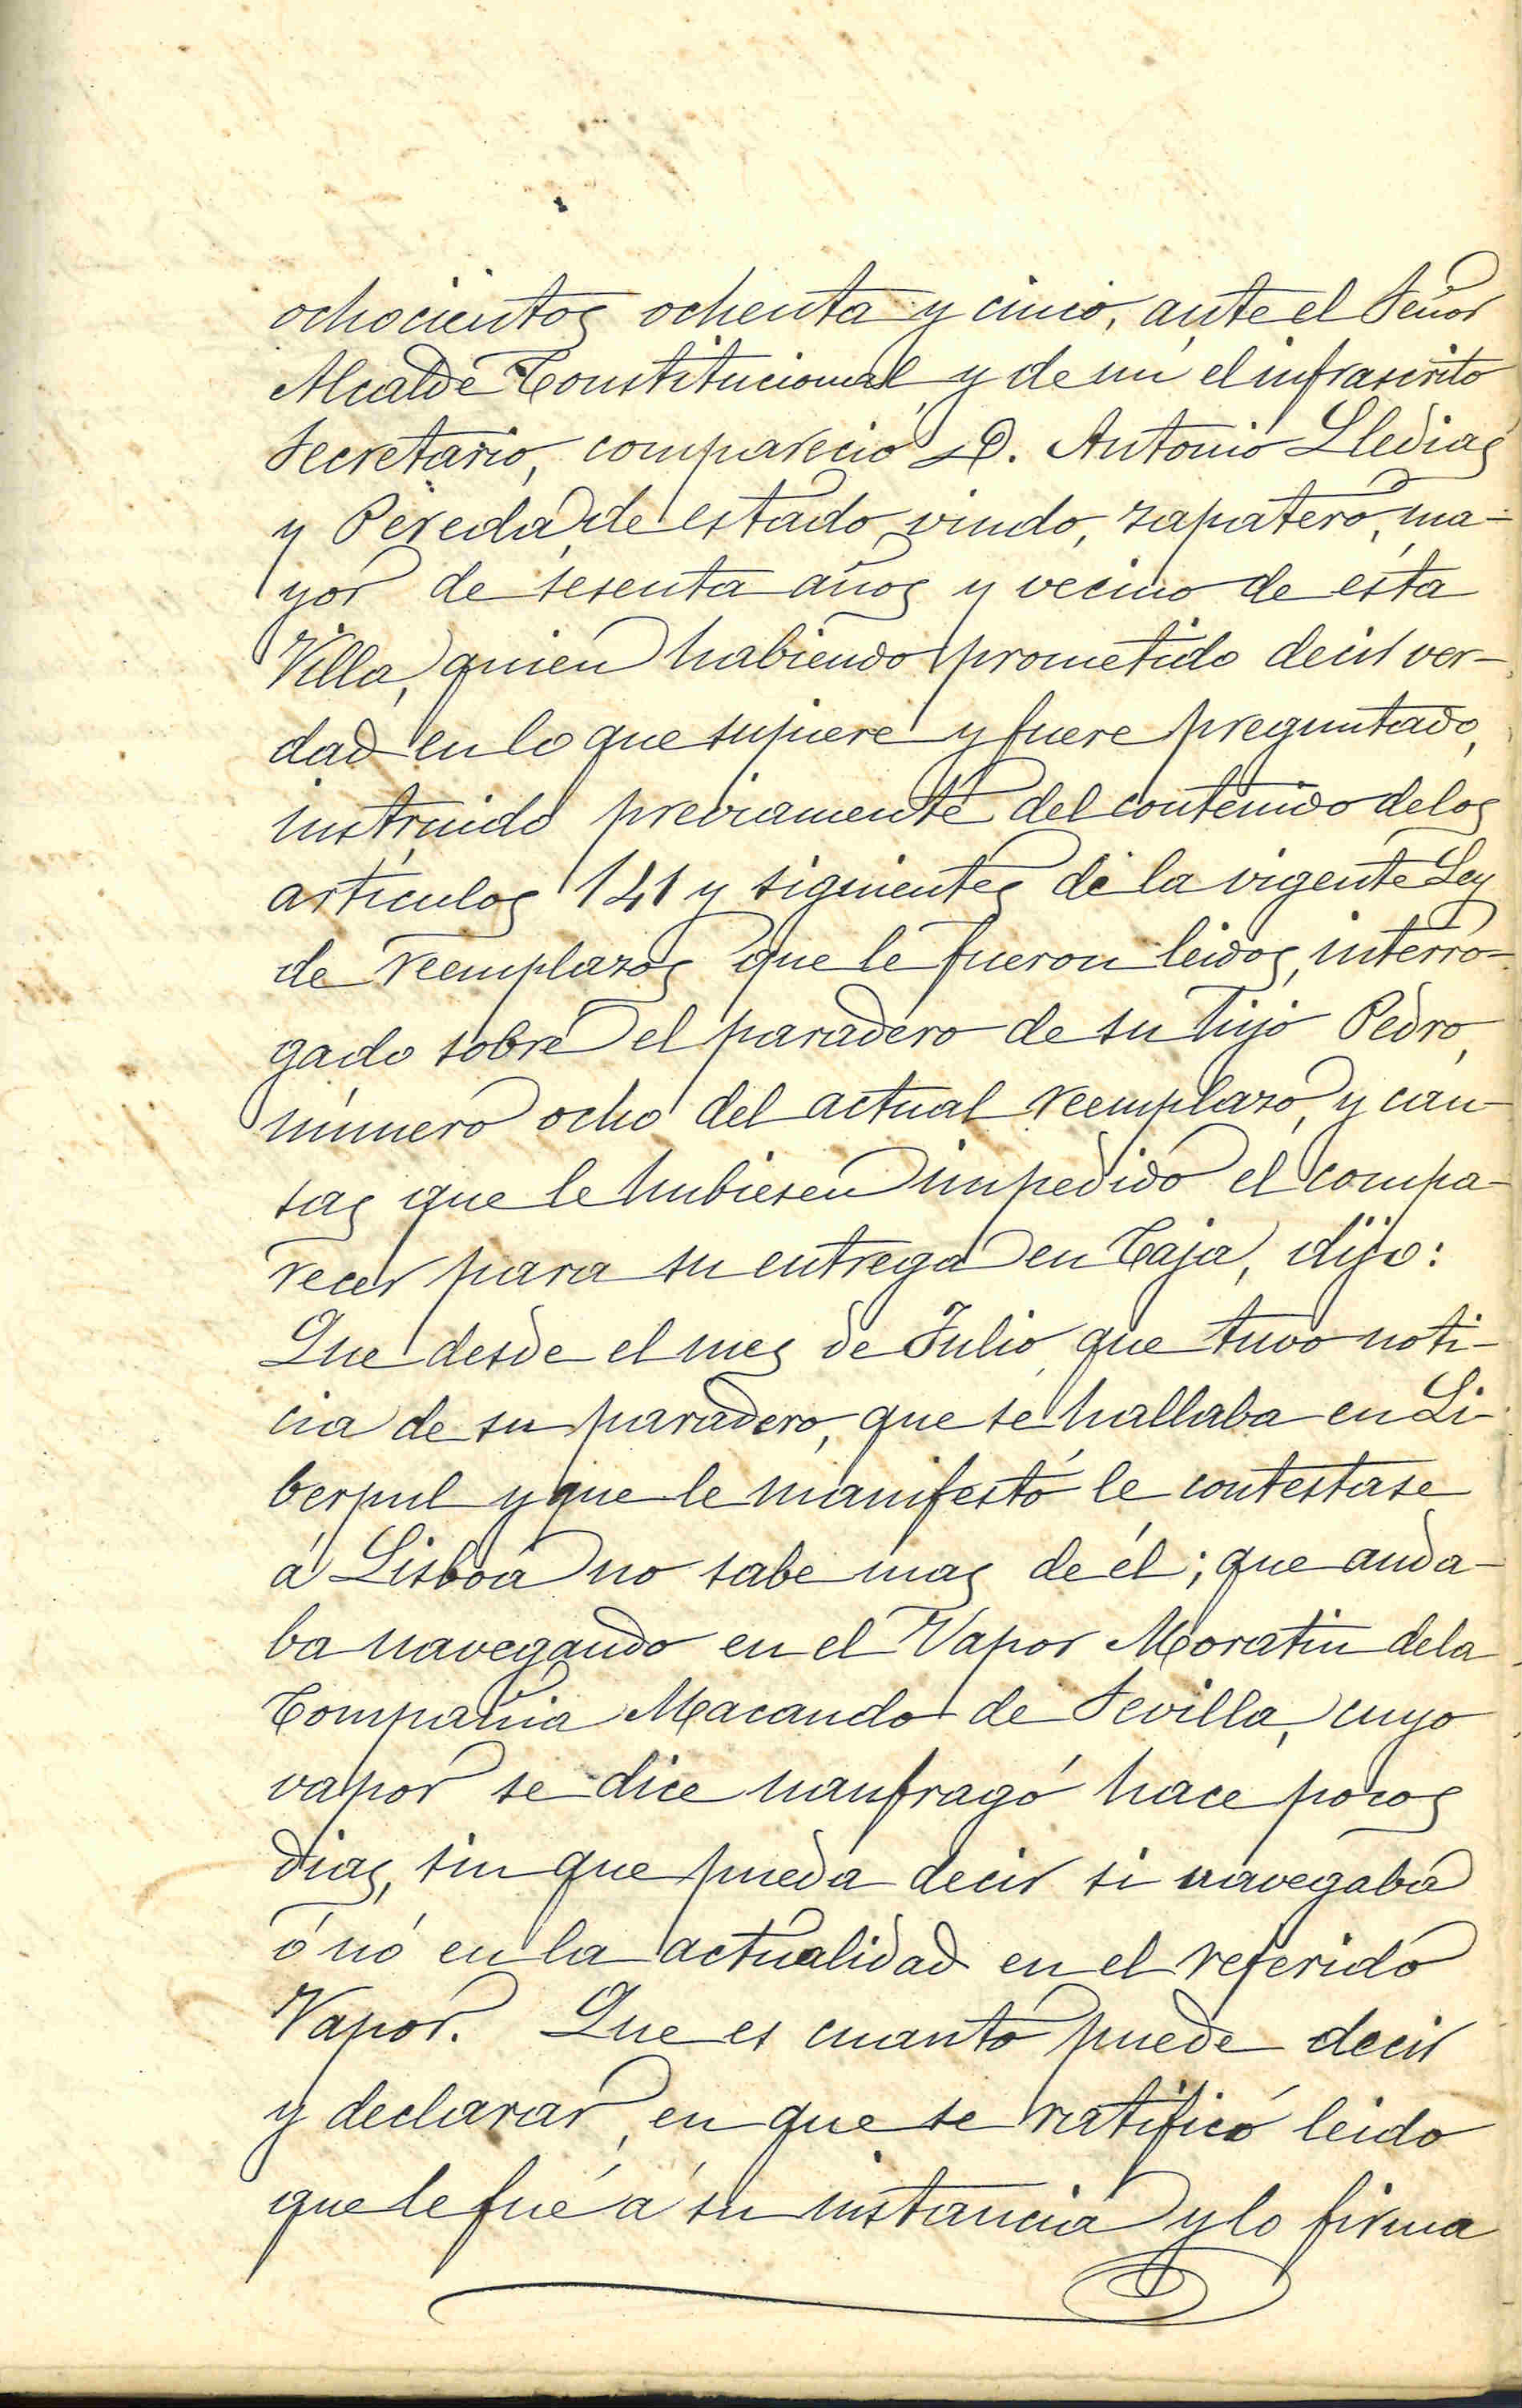 ochocientos ochenta y cinco, ante el Señor
Alcalde Constitucional y de mi el infrascrito
Secretario, compareció D. Antonio Lledias
y Pereda, de estado viudo, zapatero, ma-
yor de sesenta años y vecino de esta
Villa, quien habiendo prometido decir ver-
dad en lo que supiere y fuere preguntado,
instruido previamente del contenido de los
artículos 141 y siguientes de la vigente Ley
de reemplazos que le fueron leidos, interro-
gado sobre el paradero de su hijo Pedro,
número ocho del actual reemplazo, y cau-
sas que le hubiesen impedido el compa-
recer para su entrega en Caja, dijo:
Que desde el mes de Julio, que tuvo noti-
cia de su paradero, que se hallaba en Li-
berpul y que le manifestó le contestase
á Lisboa no sabe mas de él; que anda-
ba navegando en el Vapor Moratin de la
Compañia Macando de Sevilla, cuyo
vapor se dice naufragó hace pocos
dias, sin que pueda decir si navegaba
ó nó en la actualidad en el referido
Vapor. Que es cuanto puede decir
y declarar, en que se ratificó leido
que le fué á su instancia y lo firma